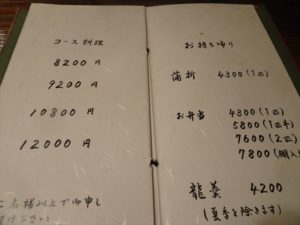 コース料理
8200 円
9200 円
10800 円
12000 円
名様以上で御申し
下さい
お持ち帰り
蒲折 4300 (1匹)
お弁当 4300 (1匹)
5800 (1匹半)
7600 (2匹)
7800
龍羹 4200
(夏季を除きます)